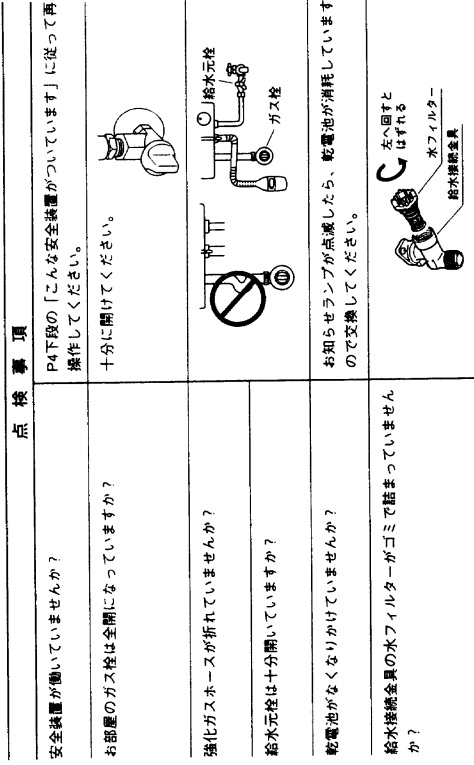 点検事項
安全装置が働いていませんか？
P4下段の「こんな安全装置がついています」に従って再
操作してください。
お部屋のガス栓は全開になっていますか？
十分に開けてください。
強化ガスホースが折れていませんか？
給水元栓
ガス栓
給水元栓は十分開いていますか？
乾電池がなくなりかけていませんか？
お知らせランプが点滅したら、乾電池が消耗しています
ので交換してください。
給水接続金具の水フィルターがゴミで詰まっていません
か？
左へ回すと
はずれる
水フィルター
給水接続金具